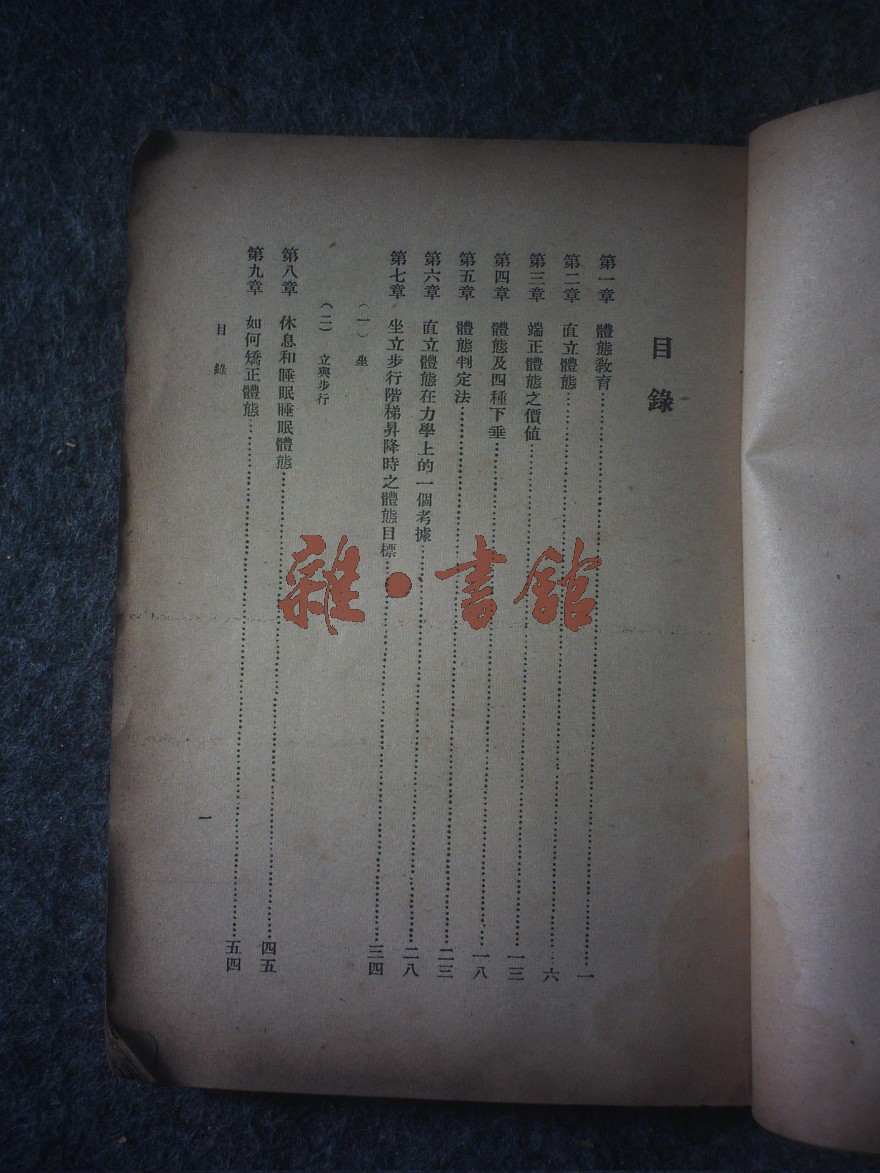 目錄
第一章 體態教育……一
第二章 直立體態……六
第三章 端正體態之價值……一三
第四章 體態及四種下垂……一八
第五章 體態判定法……二三
第六章 直立體態在力學上的一個考據……二八
第七章 坐立步行階梯昇降時之體態目標……三四
(一) 坐
(二) 立與步行
第八章 休息和睡眠睡眠體態……四五
第九章 如何矯正體態……五四
目錄
一
雜·書館